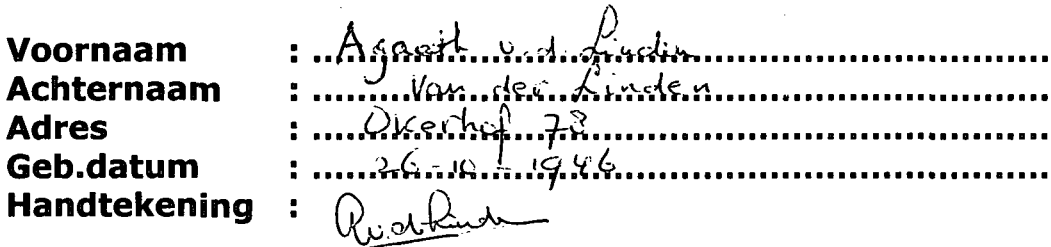 Voornaam : Agaath v.d. Linden
Achternaam : Van der Linden
Adres : Okerhof 78
Geb.datum : 26-10-1946
Handtekening :